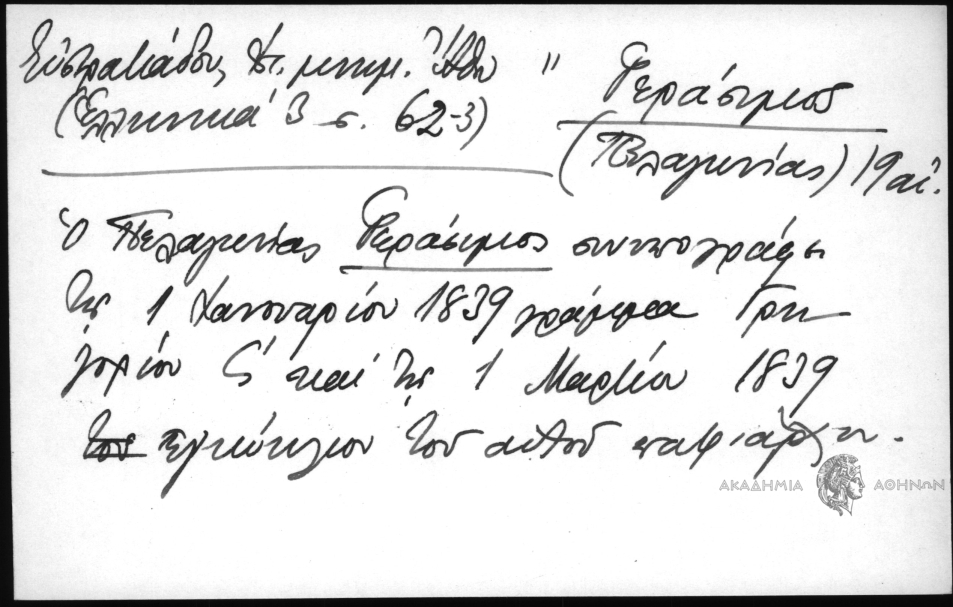 Εὐστρατιάδου, Ἱστ. μνημ. Ἄθω "
(Ἑλληνικά 3 σ. 62-3)
Γεράσιμος
(Πελαγωνίας) 19 αἰ.
Ὁ Πελαγωνίας Γεράσιμος συνυπογράφει
τῆς 1 Ἰανουαρίου 1839 γράμμα Γρη-
γορίου Ϛ΄ καί τῆς 1 Μαρτίου 1839
ἐγκύκλιον τοῦ αὐτοῦ πατριάρχη.
ΑΚΑΔΗΜΙΑ ΑΘΗΝΩΝ